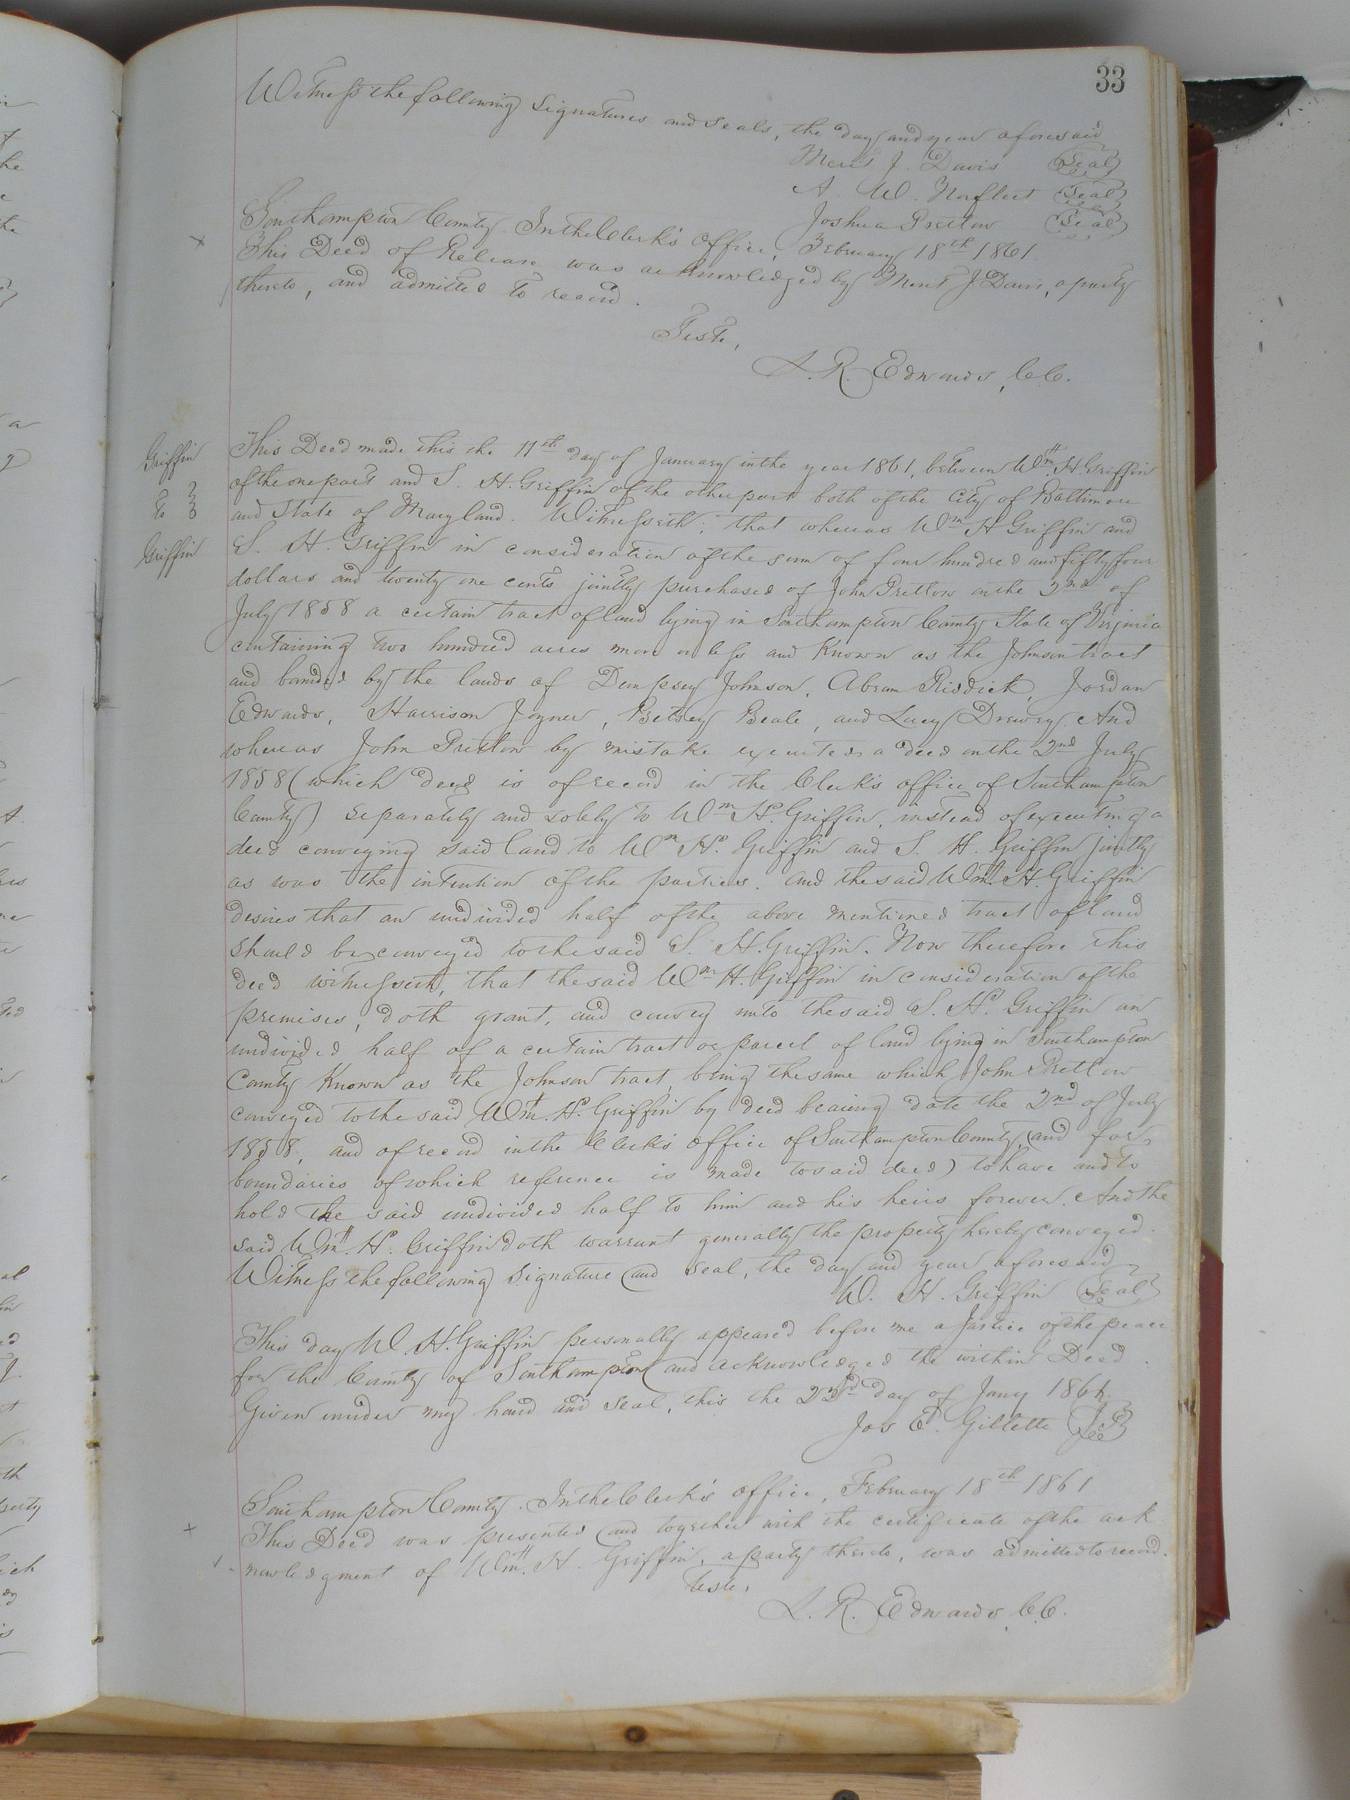 33
Witness the following signatures and seals, the day and year aforesaid
J. Davis Seal
A. W. Norfleet Seal
Joshua Pretlow Seal
Southampton County. In the Clerk's office, February 18th 1861.
This Deed of Release was acknowledged by J. Davis, a party
thereto, and admitted to record.
Teste,
L. R. Edwards, C.C.
Griffin
To
Griffin
This Deed made this the 11th day of January in the year 1861, between Wm. H. Griffin
of the one part and S. H. Griffin of the other part both of the City of Baltimore
and State of Maryland. Witnesseth; that whereas Wm H Griffin and
S. H. Griffin in consideration of the sum of four hundred and fifty four
dollars and twenty one cents jointly purchased of John Pretlow on the 2nd of
July 1858 a certain tract of land lying in Southampton County State of Virginia
containing two hundred acres more or less and Known as the Johnson tract
and bounded by the lands of Dempsey Johnson, Abram Risdick, Jordan
Edwards, Harrison Joyner, Betsey Beale, and Lucy Drewry. And
whereas John Pretlow by mistake executed a deed on the 2nd July
1858 (which deed is of record in the Clerk's office of Southampton
County) separately and solely to Wm H. Griffin, instead of executing a
deed conveying said land to Wm H. Griffin and S. H. Griffin jointly
as was the intention of the parties. And the said Wm. H. Griffin
desires that an undivided half of the above mentioned tract of land
should be conveyed to the said S. H. Griffin. Now therefore this
deed witnesseth, that the said Wm H. Griffin in consideration of the
premises, doth grant, and convey unto the said S. H. Griffin an
undivided half of a certain tract or parcel of land lying in Southampton
County Known as the Johnson tract, being the same which John Pretlow
conveyed to the said Wm. H. Griffin by deed bearing date the 2nd of July
1858, and of record in the Clerk's office of Southampton County, (and for
boundaries of which reference is made to said deed) to have and to
hold the said undivided half to him and his heirs forever. And the
said Wm. H. Griffin doth warrant generally the property hereby conveyed.
Witness the following signature and seal, the day and year aforesaid
W. H. Griffin Seal
This day W H. Griffin personally appeared before me a Justice of the peace
for the County of Southampton and acknowledged the within Deed.
Given under my hand and seal, this the 23rd day of Jany 1861.
Jos E. Gillette
Southampton County. In the Clerk's office, February 18th 1861
This Deed was presented and together with the certificate of the ack
nowledgment of Wm. H. Griffin, a party thereto, was admitted to record.
Teste,
L. R. Edwards, C.C.